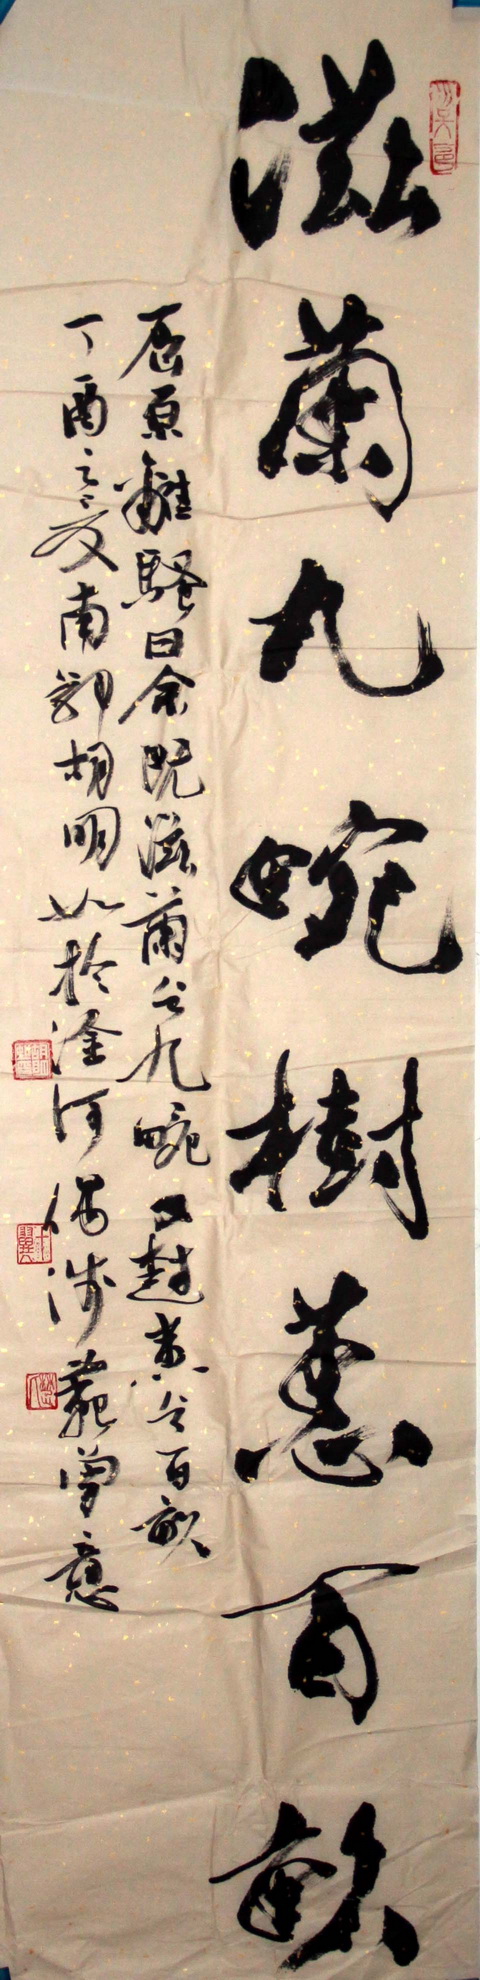 滋蘭九畹樹蕙百畝
屈原離騷曰余既滋蘭之九畹又樹蕙之百畝
丁酉之夏南郭胡明 於淦河偶涉 意